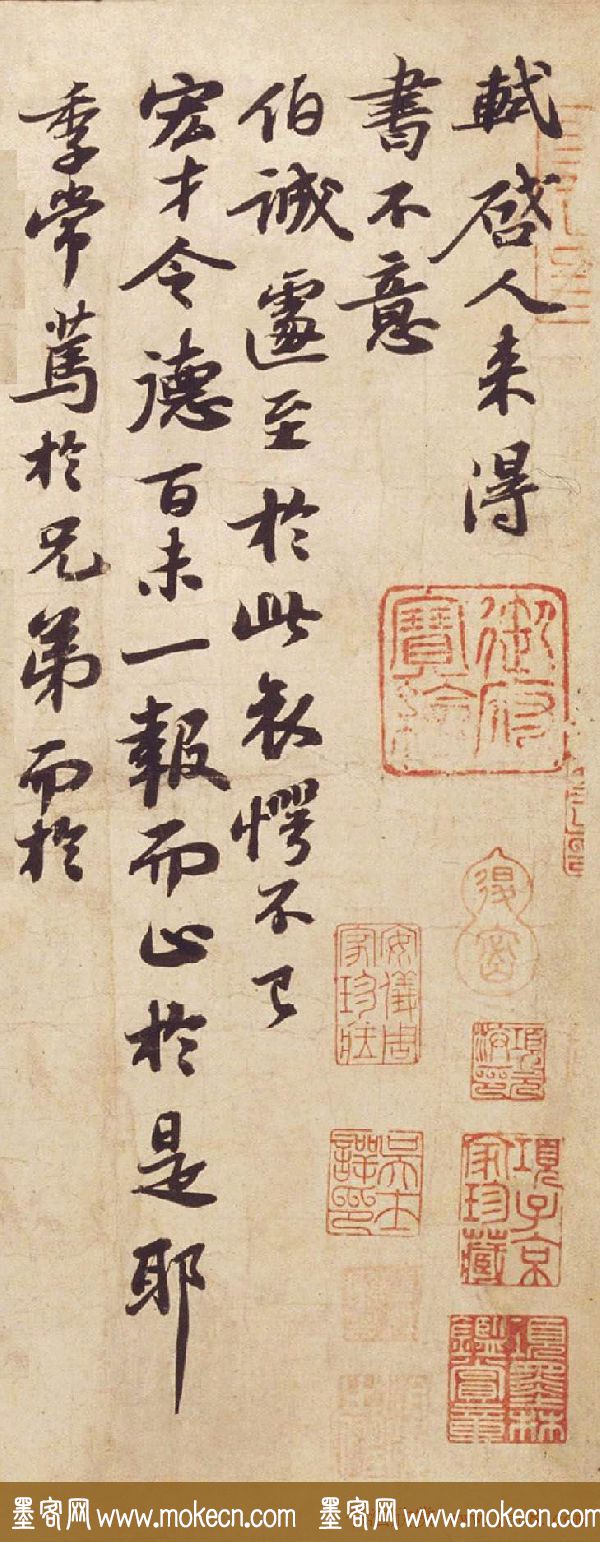 軾啓人来得
書不意
伯誠遽至於此哀愕不已
宏才令德百未一報而止於是耶
季常篤於兄弟而於
御府寶繪
安儀周家珍藏
項子京家珍藏
項墨林鑑賞章
墨客网 www.mokecn.com 墨客网 www.mokecn.com